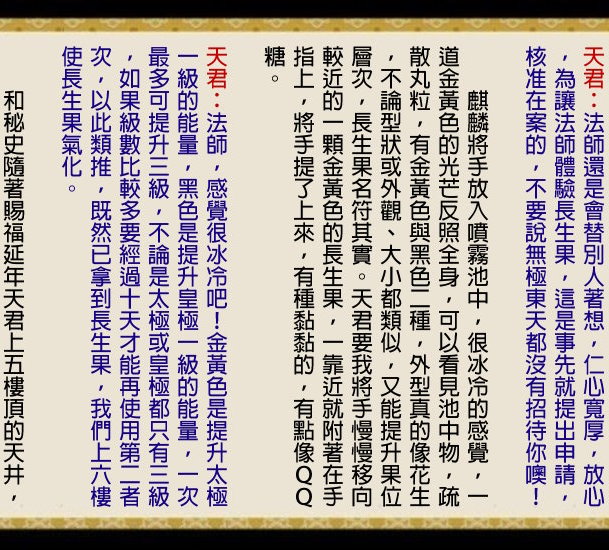 天君：法師還是會替別人著想，仁心寬厚，放心
，為讓法師體驗長生果，這是事先就提出申請，
核准在案的，不要說無極東天都沒有招待你噢！
麒麟將手放入噴霧池中，很冰冷的感覺，一
道金黃色的光芒反照全身，可以看見池中物，疏
散丸粒，有金黃色與黑色二種，外型真的像花生
，不論型狀或外觀、大小都類似，又能提升果位
層次，長生果名符其實。天君要我將手慢慢移向
較近的一顆金黃色的長生果，一靠近就附著在手
指上，將手提了上來，有種黏黏的，有點像QQ
糖。
天君：法師，感覺很冰冷吧！金黃色是提升太極
一級的能量，黑色是提升皇極一級的能量，一次
最多可提升三級，不論是太極或皇極都只有三級
，如果級數比較多要經過十天才能再使用第二者
次，以此類推，既然已拿到長生果，我們上六樓
使長生果氣化。
和秘史隨著賜福延年天君上五樓頂的天井，